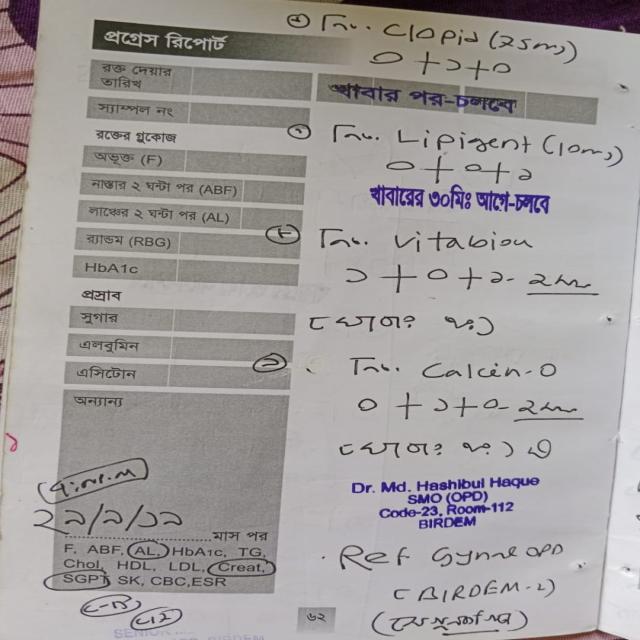 প্রগ্রেস রিপোর্ট
রক্ত দেয়ার
তারিখ
স্যাম্পল নং
রক্তের গ্লুকোজ
অভুক্ত (F)
নাস্তার ২ ঘন্টা পর (ABF)
লাঞ্চের ২ ঘন্টা পর (AL)
র‍্যান্ডম (RBG)
HbA1c
প্রস্রাব
সুগার
এলবুমিন
এসিটোন
অন্যান্য
মাস পর
F, ABF, AL, HbA1c, TG,
Chol, HDL, LDL, Creat,
SGPT, SK, CBC, ESR
Clopid (75mg)
০+১+০
খাবার পর-চলবে
Lipigent (10mg)
০+০+১
খাবারের ৩০মিঃ আগে-চলবে
Vitabion
১+০+১-
Calcin-O
০+১+০-
Dr. Md. Hashibul Haque
SMO (OPD)
Code-23, Room-112
BIRDEM
Ref Gynae OPD
(BIRDEM-2)
৬২